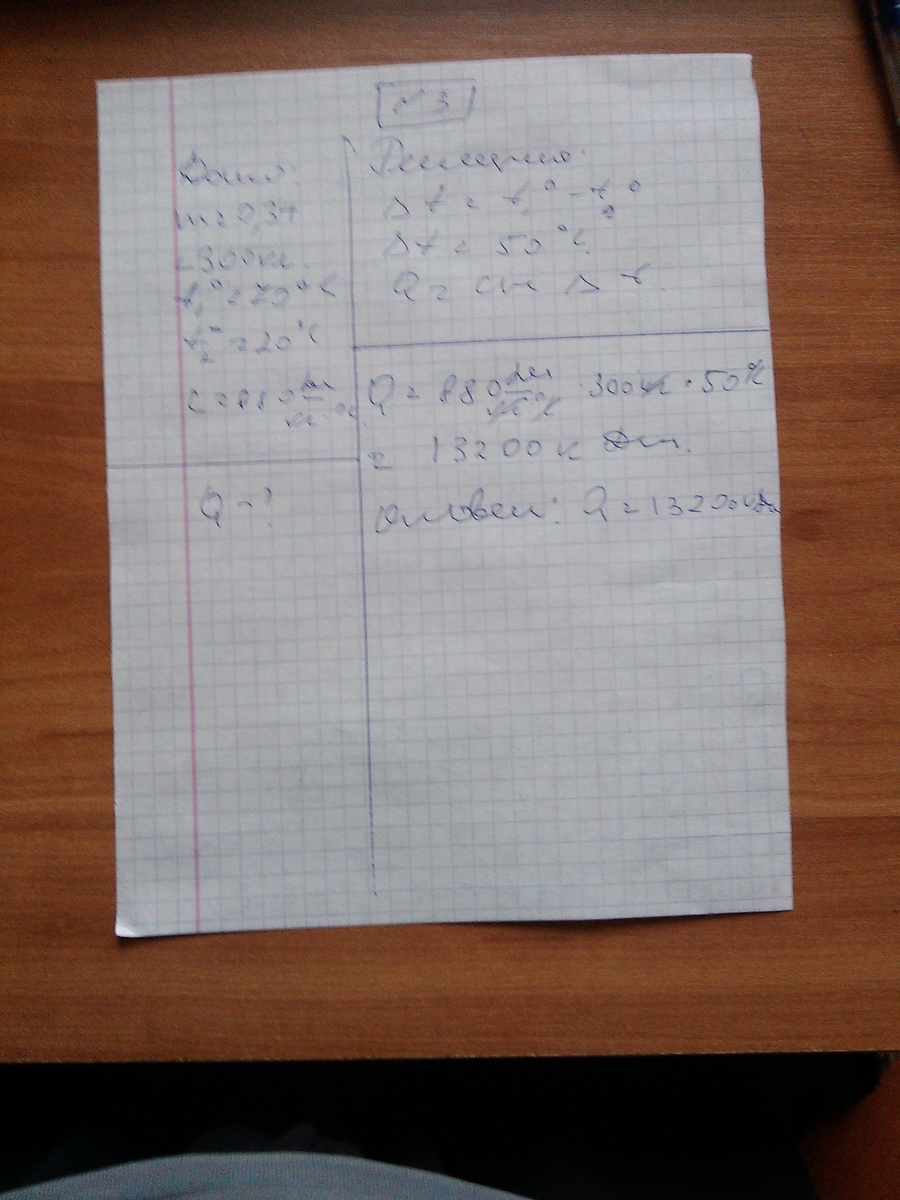 №3
Дано:
m = 0,3т
= 300кг.
t₁° = 70°C
t₂° = 20°C
c = 880 Дж/кг·°C
Q - ?
Решение:
Δt = t₁° - t₂°
Δt = 50°C.
Q = cm Δt.
Q = 880 Дж/кг°C · 300кг · 50°C
= 13200 кДж.
Ответ: Q = 13200кДж